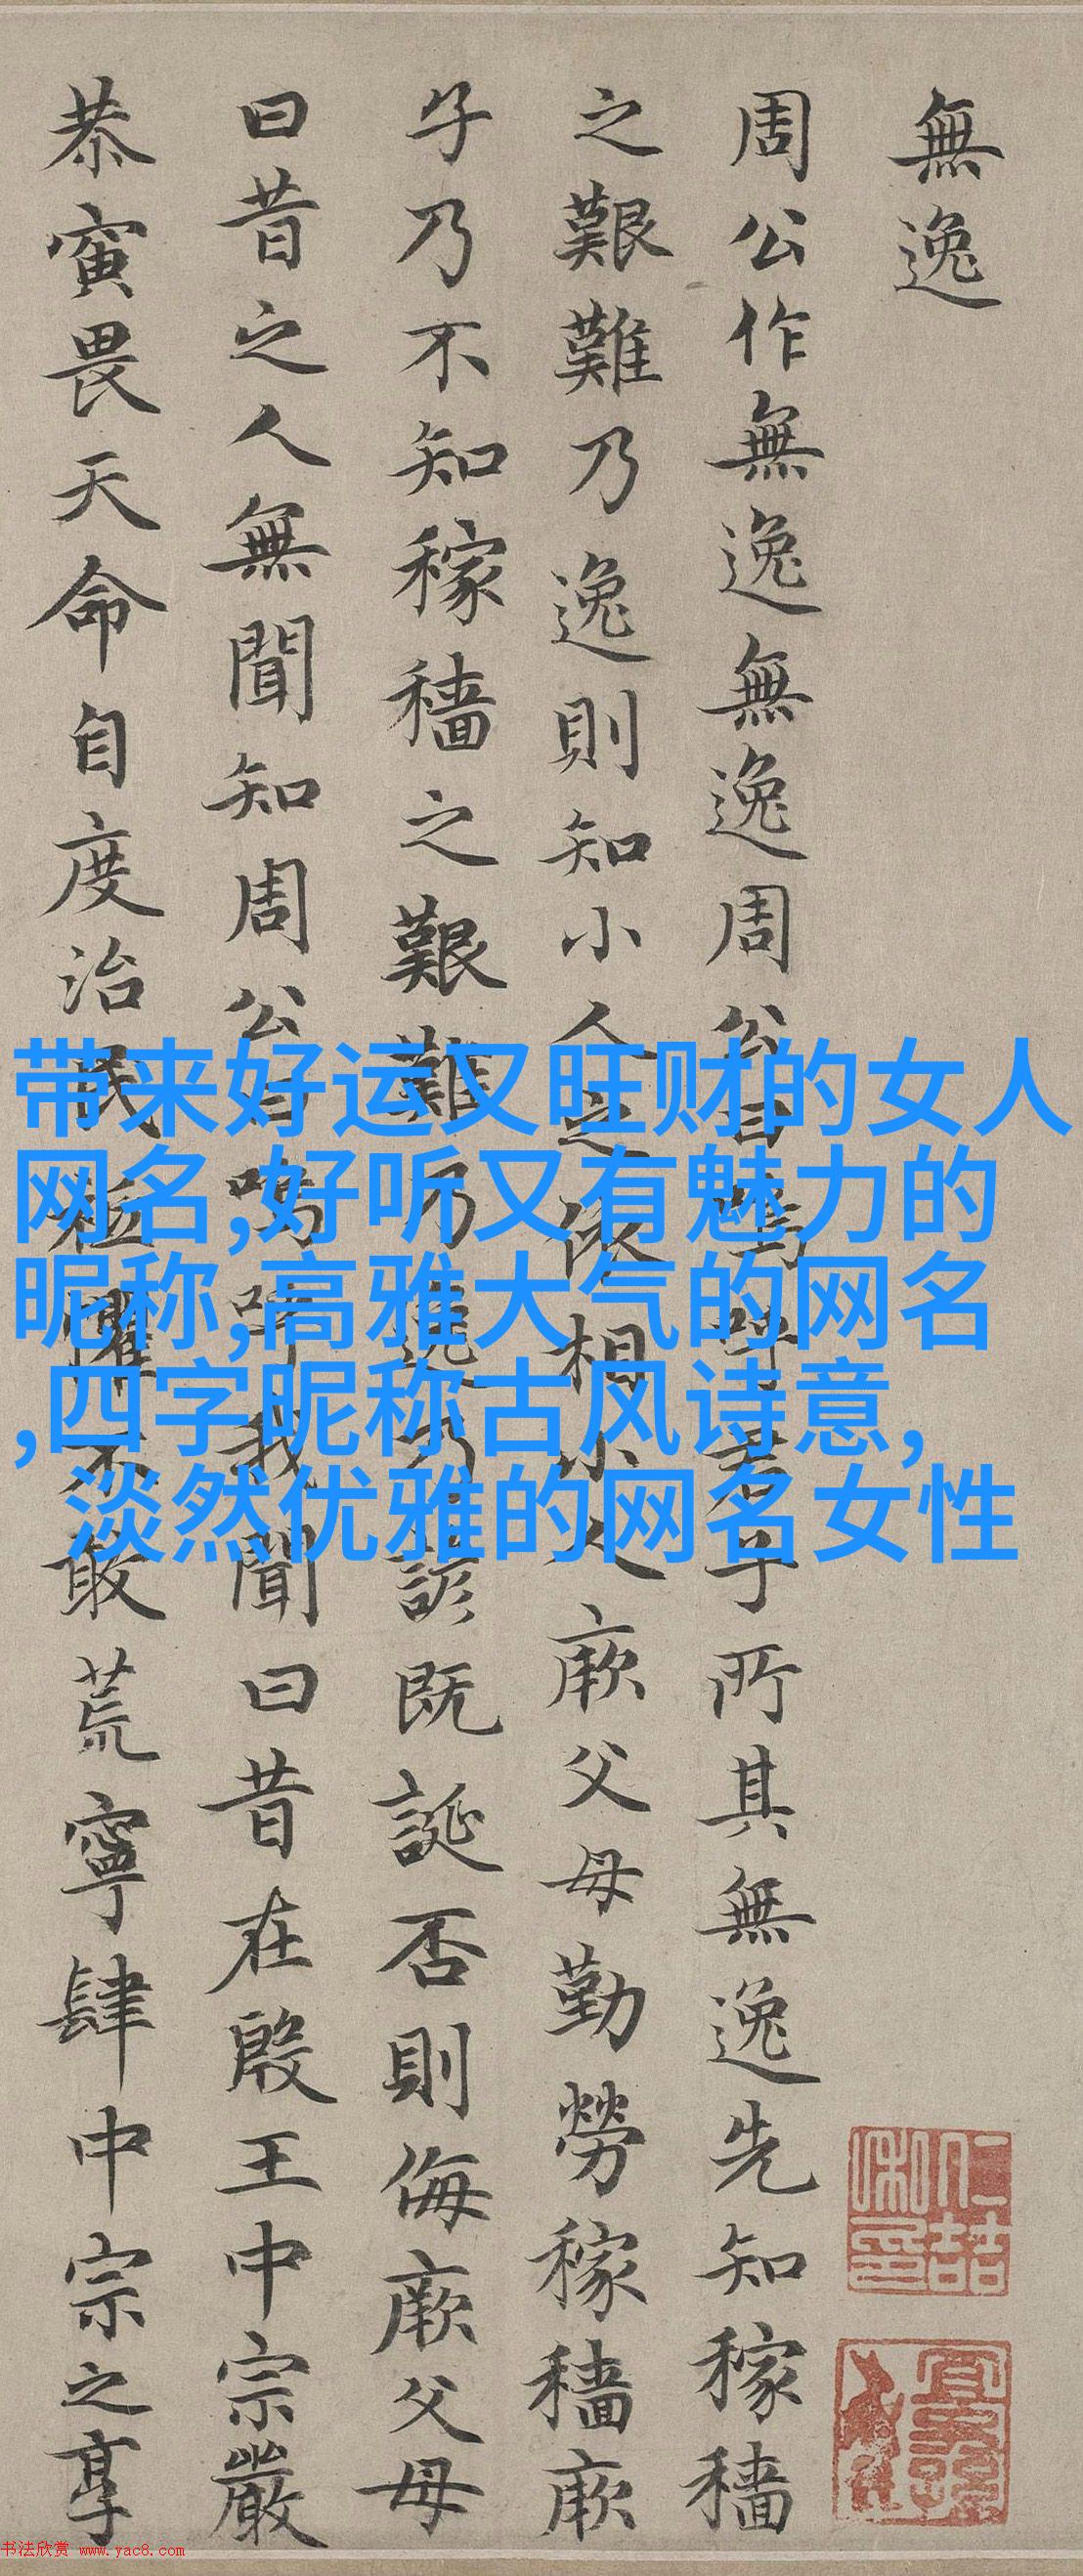 無逸
周公作無逸無逸周公曰嗚呼君子所其無逸先知稼穡
之艱難乃逸則知小人之依相小人厥父母勤勞稼穡厥
子乃不知稼穡之艱難乃逸乃諺既誕否則侮厥父母
曰昔之人無聞知周公曰嗚呼我聞曰昔在殷王中宗嚴
恭寅畏天命自度治民祗懼不敢荒寧肆中宗之享
带来好运又旺财的女人
网名,好听又有魅力的
昵称,高雅大气的网名
,四字昵称古风诗意,
淡然优雅的网名女性
书法欣赏 www.yac8.com